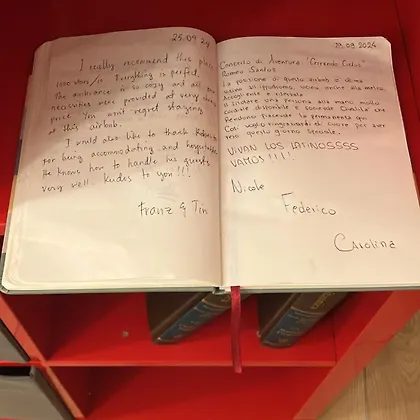 25.09.24
I really recommend this place,
1000 stars/10. Everything is perfect.
The ambiance is so cozy and all our
necessities were provided at very cheap
price. You won't regret staying
at this airbnb.
I would also like to thank
for being accommodating and hospitable.
He knows how to handle his guests
very well. Kudos to you!!!
Franz & Tin
29.09.2024
Concerto di Aventura "Cerrando Ciclos"
Romeo Santos
La posizione di questo airbnb è ottima
vicino all'ippodromo, vicino anche alla metro.
Accogliente e comoda.
Il sindaco una persona alla mano molto
cordiale disponibile e conviviale. Qualità che
rendono piacevole la permanenza qui.
Così voglio ringraziarla di cuore per aver
reso questo giorno speciale.
VIVAN LOS LATINOSSSS
VAMOS!!!!
Nicole
Federico
Carolina